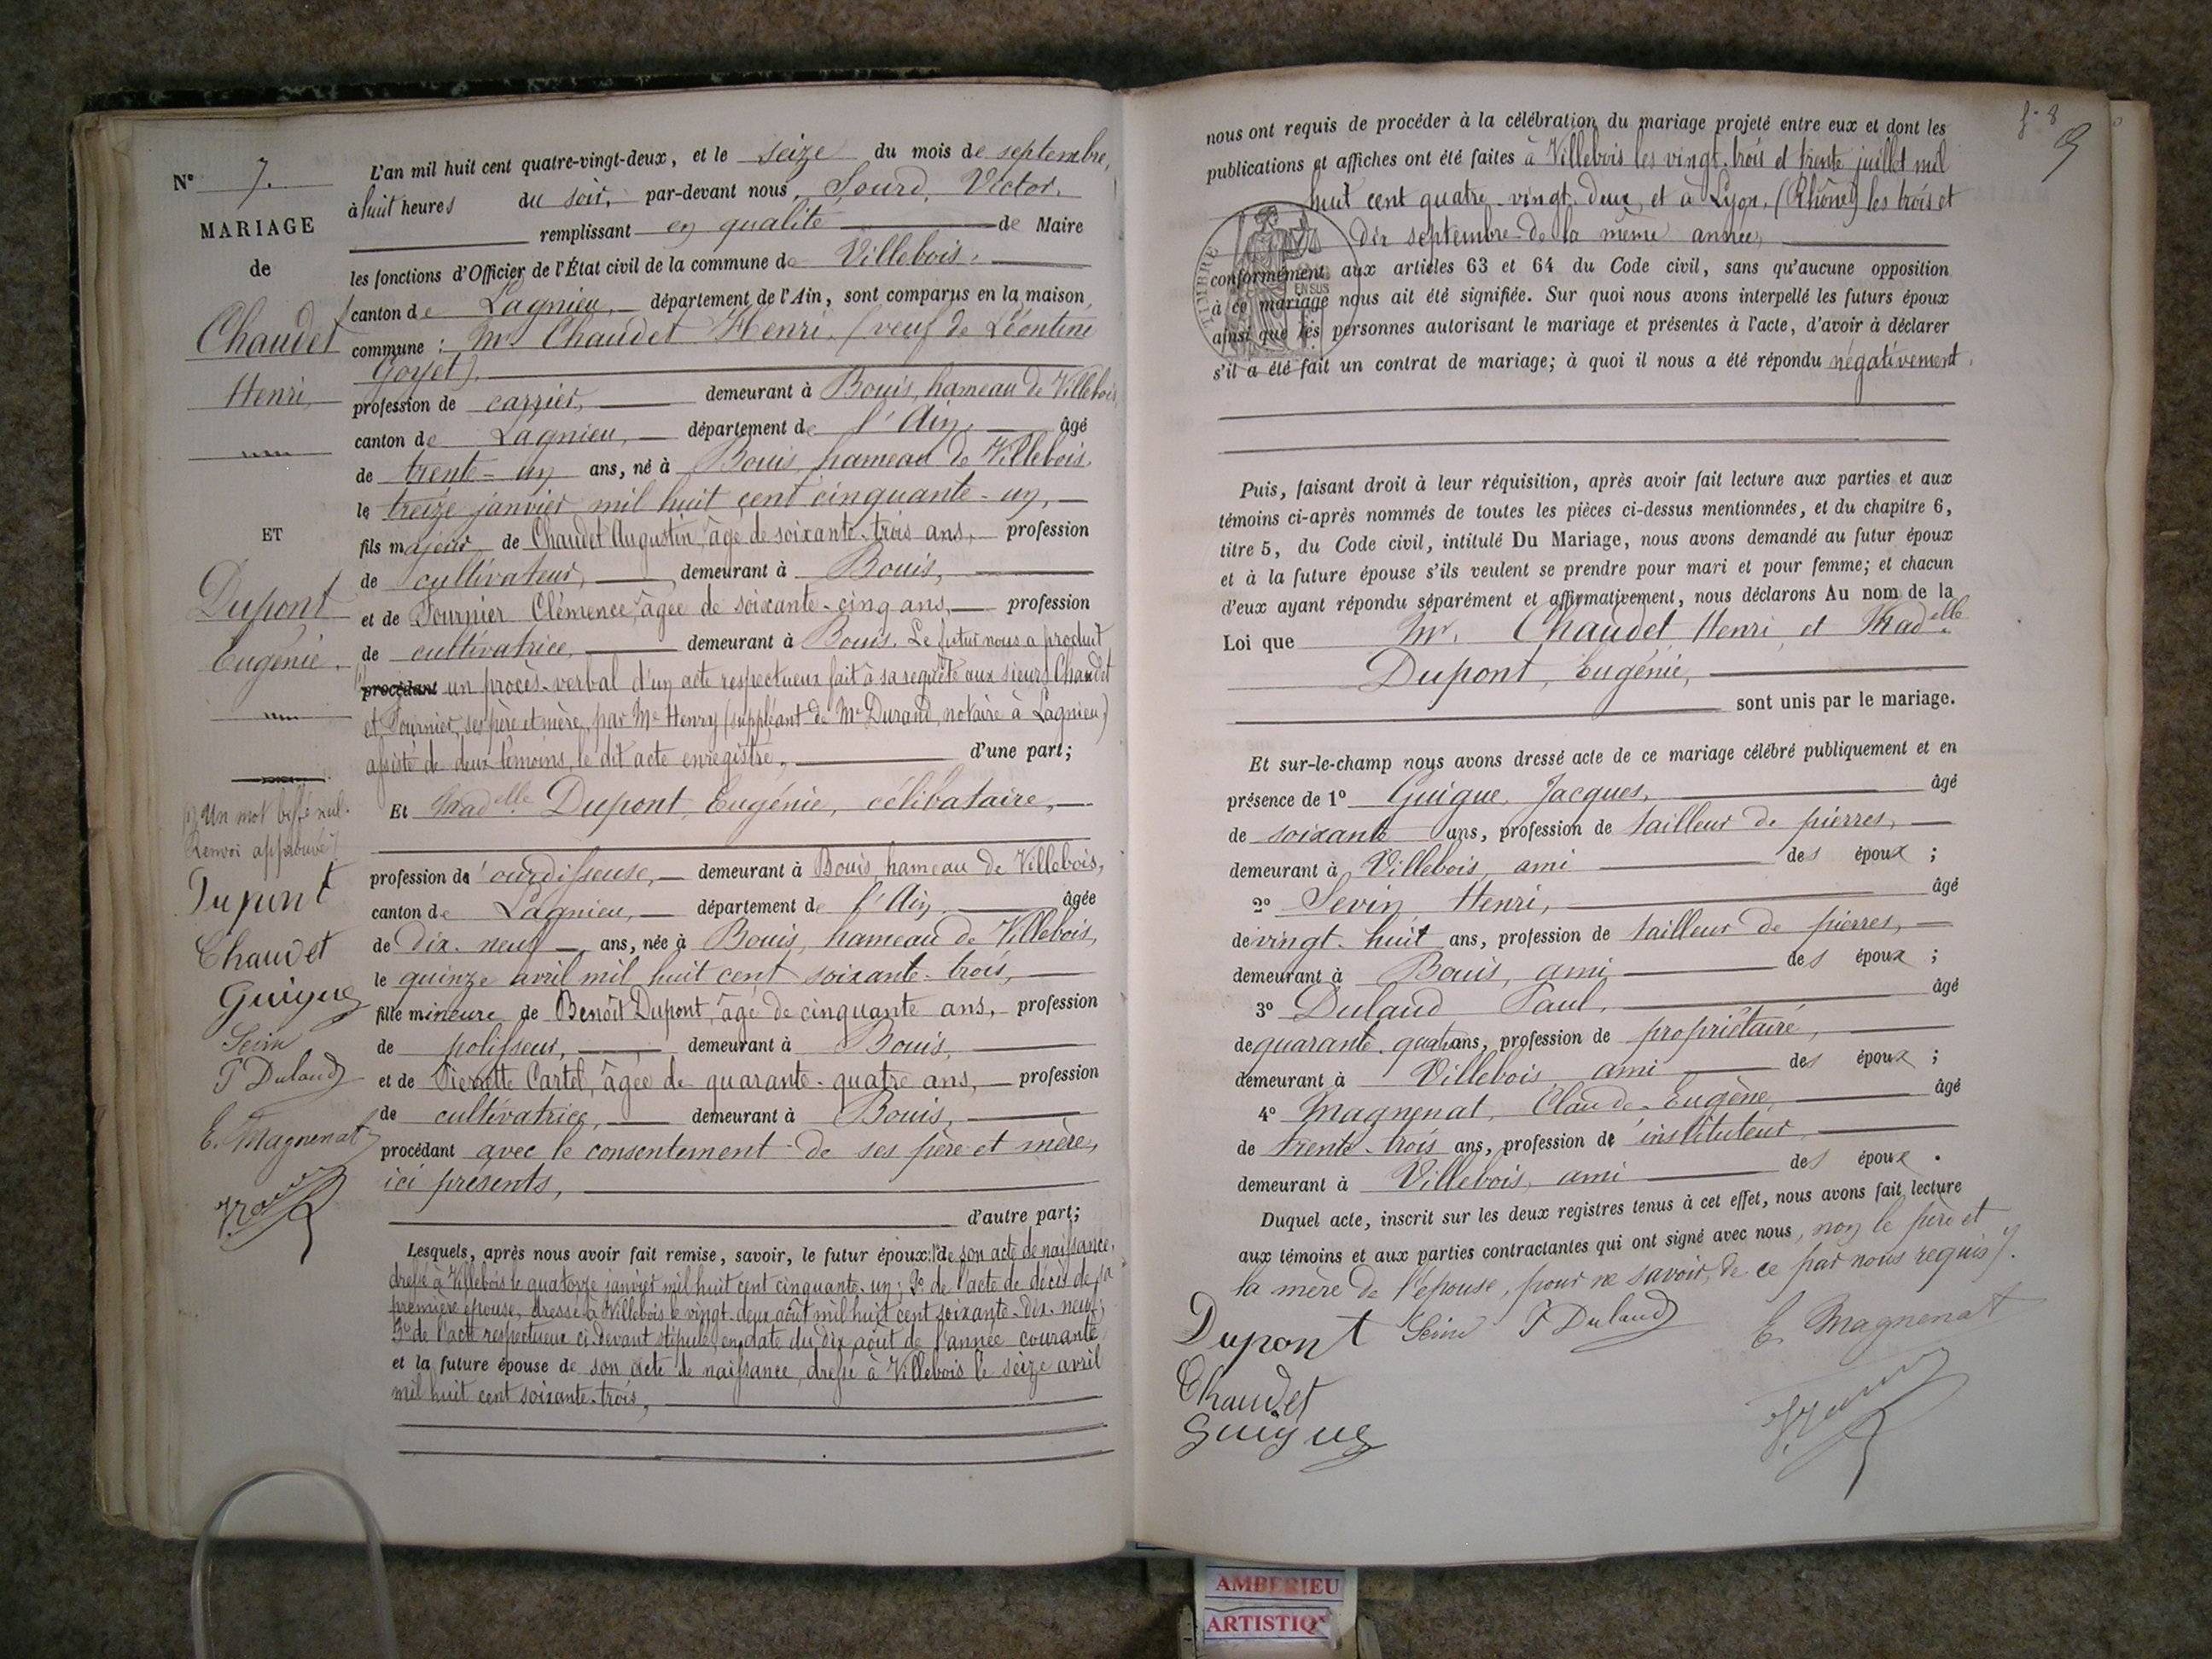 N° 7.
MARIAGE
de
Chaudet
Henri
ET
Dupont
Eugénie.
(1) Un mot biffé nul.
Renvoi approuvé
Dupont
Chaudet
Guigue
Sevin
P Dulaud
E. Magnenat
L'an mil huit cent quatre-vingt-deux, et le seize du mois de septembre,
à huit heures du soir, par-devant nous, Sourd, Victor,
remplissant en qualité de Maire
les fonctions d'Officier de l'État civil de la commune de Villebois,
canton de Lagnieu, département de l'Ain, sont comparus en la maison
commune : Mr Chaudet Henri, (veuf de Léontine
Goyet),
profession de carrier, demeurant à Bouis, hameau de Villebois,
canton de Lagnieu, département de l'Ain, âgé
de trente-un ans, né à Bouis, hameau de Villebois,
le treize janvier mil huit cent cinquante-un,
fils majeur de Chaudet Augustin, âgé de soixante-trois ans, profession
de cultivateur, demeurant à Bouis,
et de Fournier Clémence, âgée de soixante-cinq ans, profession
de cultivatrice, demeurant à Bouis. Le futur nous a produit
(1) procédant un procès-verbal d'un acte respectueux fait à sa requête aux sieurs Chaudet
et Fournier, ses père et mère, par Me Henry (suppléant de Me Durand, notaire à Lagnieu,)
assisté de deux témoins, le dit acte enregistré, d'une part;
Et Madelle Dupont, Eugénie, célibataire,
profession d'ourdisseuse, demeurant à Bouis, hameau de Villebois,
canton de Lagnieu, département de l'Ain, âgée
de dix-neuf ans, née à Bouis, hameau de Villebois,
le quinze avril mil huit cent soixante-trois,
fille mineure de Benoît Dupont, âgé de cinquante ans, profession
de polisseur, demeurant à Bouis,
et de Pierrette Cartel, âgée de quarante-quatre ans, profession
de cultivatrice, demeurant à Bouis,
procédant avec le consentement de ses père et mère,
ici présents,
d'autre part;
Lesquels, après nous avoir fait remise, savoir, le futur époux: 1° de son acte de naissance,
dressé à Villebois le quatorze janvier mil huit cent cinquante-un; 2° de l'acte de décès de sa
première épouse, dressé à Villebois le vingt-deux août mil huit cent soixante-dix-neuf;
3° de l'acte respectueux ci-devant stipulé, en date du dix août de l'année courante,
et la future épouse de son acte de naissance, dressé à Villebois le seize avril
mil huit cent soixante-trois,
f. 8
9
nous ont requis de procéder à la célébration du mariage projeté entre eux et dont les
publications et affiches ont été faites à Villebois les vingt-trois et trente juillet mil
huit cent quatre-vingt-deux, et à Lyon, (Rhône) les trois et
dix septembre de la même année,
TIMBRE
EN SUS
conformément aux articles 63 et 64 du Code civil, sans qu'aucune opposition
à ce mariage nous ait été signifiée. Sur quoi nous avons interpellé les futurs époux
ainsi que les personnes autorisant le mariage et présentes à l'acte, d'avoir à déclarer
s'il a été fait un contrat de mariage; à quoi il nous a été répondu négativement.
Puis, faisant droit à leur réquisition, après avoir fait lecture aux parties et aux
témoins ci-après nommés de toutes les pièces ci-dessus mentionnées, et du chapitre 6,
titre 5, du Code civil, intitulé Du Mariage, nous avons demandé au futur époux
et à la future épouse s'ils veulent se prendre pour mari et pour femme; et chacun
d'eux ayant répondu séparément et affirmativement, nous déclarons Au nom de la
Loi que Mr. Chaudet Henri et Madelle
Dupont, Eugénie,
sont unis par le mariage.
Et sur-le-champ nous avons dressé acte de ce mariage célébré publiquement et en
présence de 1° Guigue, Jacques, âgé
de soixante ans, profession de tailleur de pierres,
demeurant à Villebois, ami des époux ;
2° Sevin Henri, âgé
de vingt-huit ans, profession de tailleur de pierres,
demeurant à Bouis, ami des époux ;
3° Dulaud Paul, âgé
de quarante-quatre ans, profession de propriétaire,
demeurant à Villebois ami des époux ;
4° Magnenat, Claude-Eugène, âgé
de trente-trois ans, profession d'instituteur,
demeurant à Villebois, ami des époux .
Duquel acte, inscrit sur les deux registres tenus à cet effet, nous avons fait lecture
aux témoins et aux parties contractantes qui ont signé avec nous, non le père et
la mère de l'épouse, pour ne savoir, de ce par nous requis.
Dupont Sevin P Dulaud E. Magnenat
Chaudet
Guigue
AMBERIEU
ARTISTIQ